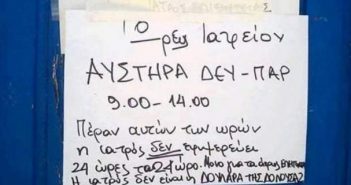 Ώρες Ιατρείου
ΑΥΣΤΗΡΑ ΔΕΥ-ΠΑΡ
9.00-14.00
Πέραν αυτών των ωρών
η ιατρός δεν εφημερεύει
24 ώρες το 24ωρο. Μόνο για τα
Η ιατρός δεν είναι η ΔΟΥΛΑΡΑ ΤΗΣ ΔΟΝΟΥΣΑΣ